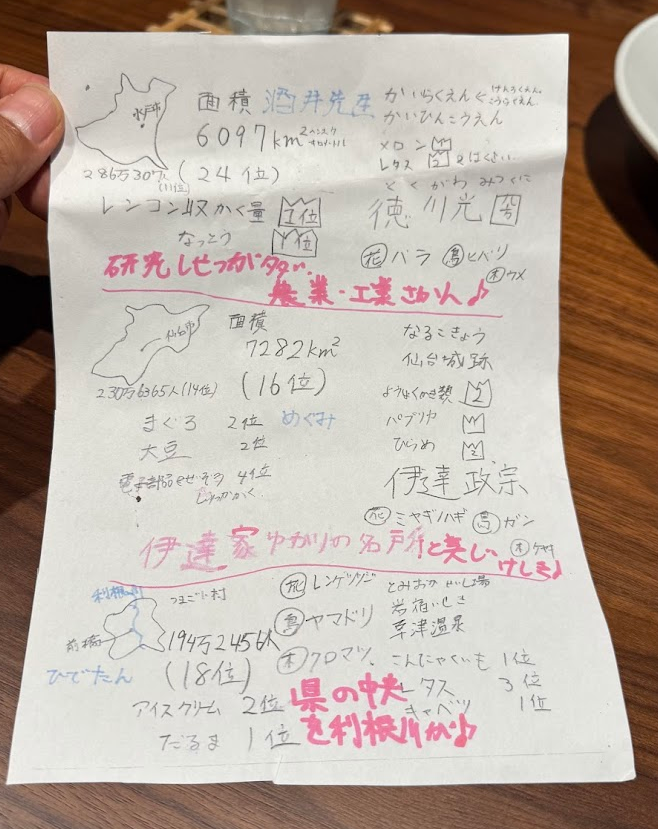 水戸市
面積 酒井先生
6097km²
286万307人(11位)
(24位)
かいらくえん
けんろくえん
こうらくえん
かいひんこうえん
メロン 1
レタス 2 はくさい
とくがわ みつくに
徳川光圀
レンコン収かく量 1位
なっとう 1位
花 バラ 鳥 ヒバリ
木 ウメ
研究しせつが多い
農業・工業さかん♪
仙台市
面積
7282km²
230万6365人(14位)
(16位)
なるこきょう
仙台城跡
ようしょくかき類 2
パプリカ
ひらめ
まぐろ 2位 めぐみ
大豆 2位
4位
しゅっかがく
伊達政宗
花 ミヤギノハギ 鳥 ガン
木 ケヤキ
伊達家ゆかりの名所と美しい
けしき♪
利根川
つまごい村
前橋
194万2456人
ひでたん
(18位)
花 レンゲツツジ
鳥 ヤマドリ
木 クロマツ
とみおかせいし場
岩宿いせき
草津温泉
こんにゃくいも 1位
レタス 3位
キャベツ 1位
アイスクリーム 2位
だるま 1位
県の中央
を利根川が♪